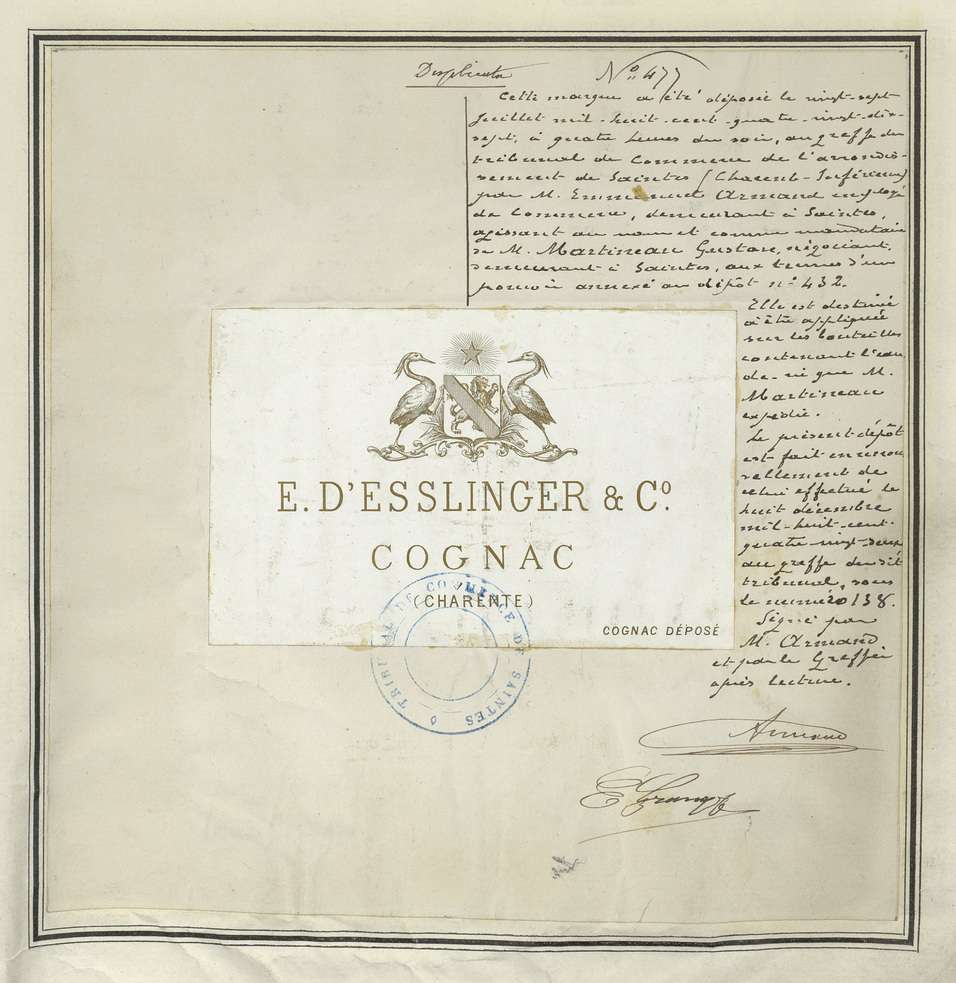 Duplicata
N° 477
Cette marque a été déposée le vingt-sept
juillet mil-huit-cent-quatre-vingt-dix-
sept, à quatre heures du soir, au greffe du
tribunal de Commerce de l'arrondis-
sement de Saintes (Charente-Inférieure)
par M. Emmanuel Armand employé
de Commerce, demeurant à Saintes,
agissant au nom et comme mandataire
de M. Martineau Gustave, négociant,
demeurant à Saintes, aux termes d'un
pouvoir annexé au dépôt n° 432.
Elle est destinée
à être appliquée
sur les bouteilles
contenant l'eau
de-vie que M.
Martineau
expédie.
Le présent dépôt
est fait en renou
vellement de
celui effectué le
huit décembre
mil-huit-cent-
quatre-vingt-deux
au greffe du dit
tribunal, sous
le numéro 138.
Signé par
M. Armand
et par le Greffier
après lecture.
E. D'ESSLINGER & Cº
COGNAC
(CHARENTE)
COGNAC DÉPOSÉ
TRIBUNAL DE COMMERCE DE SAINTES
Armand